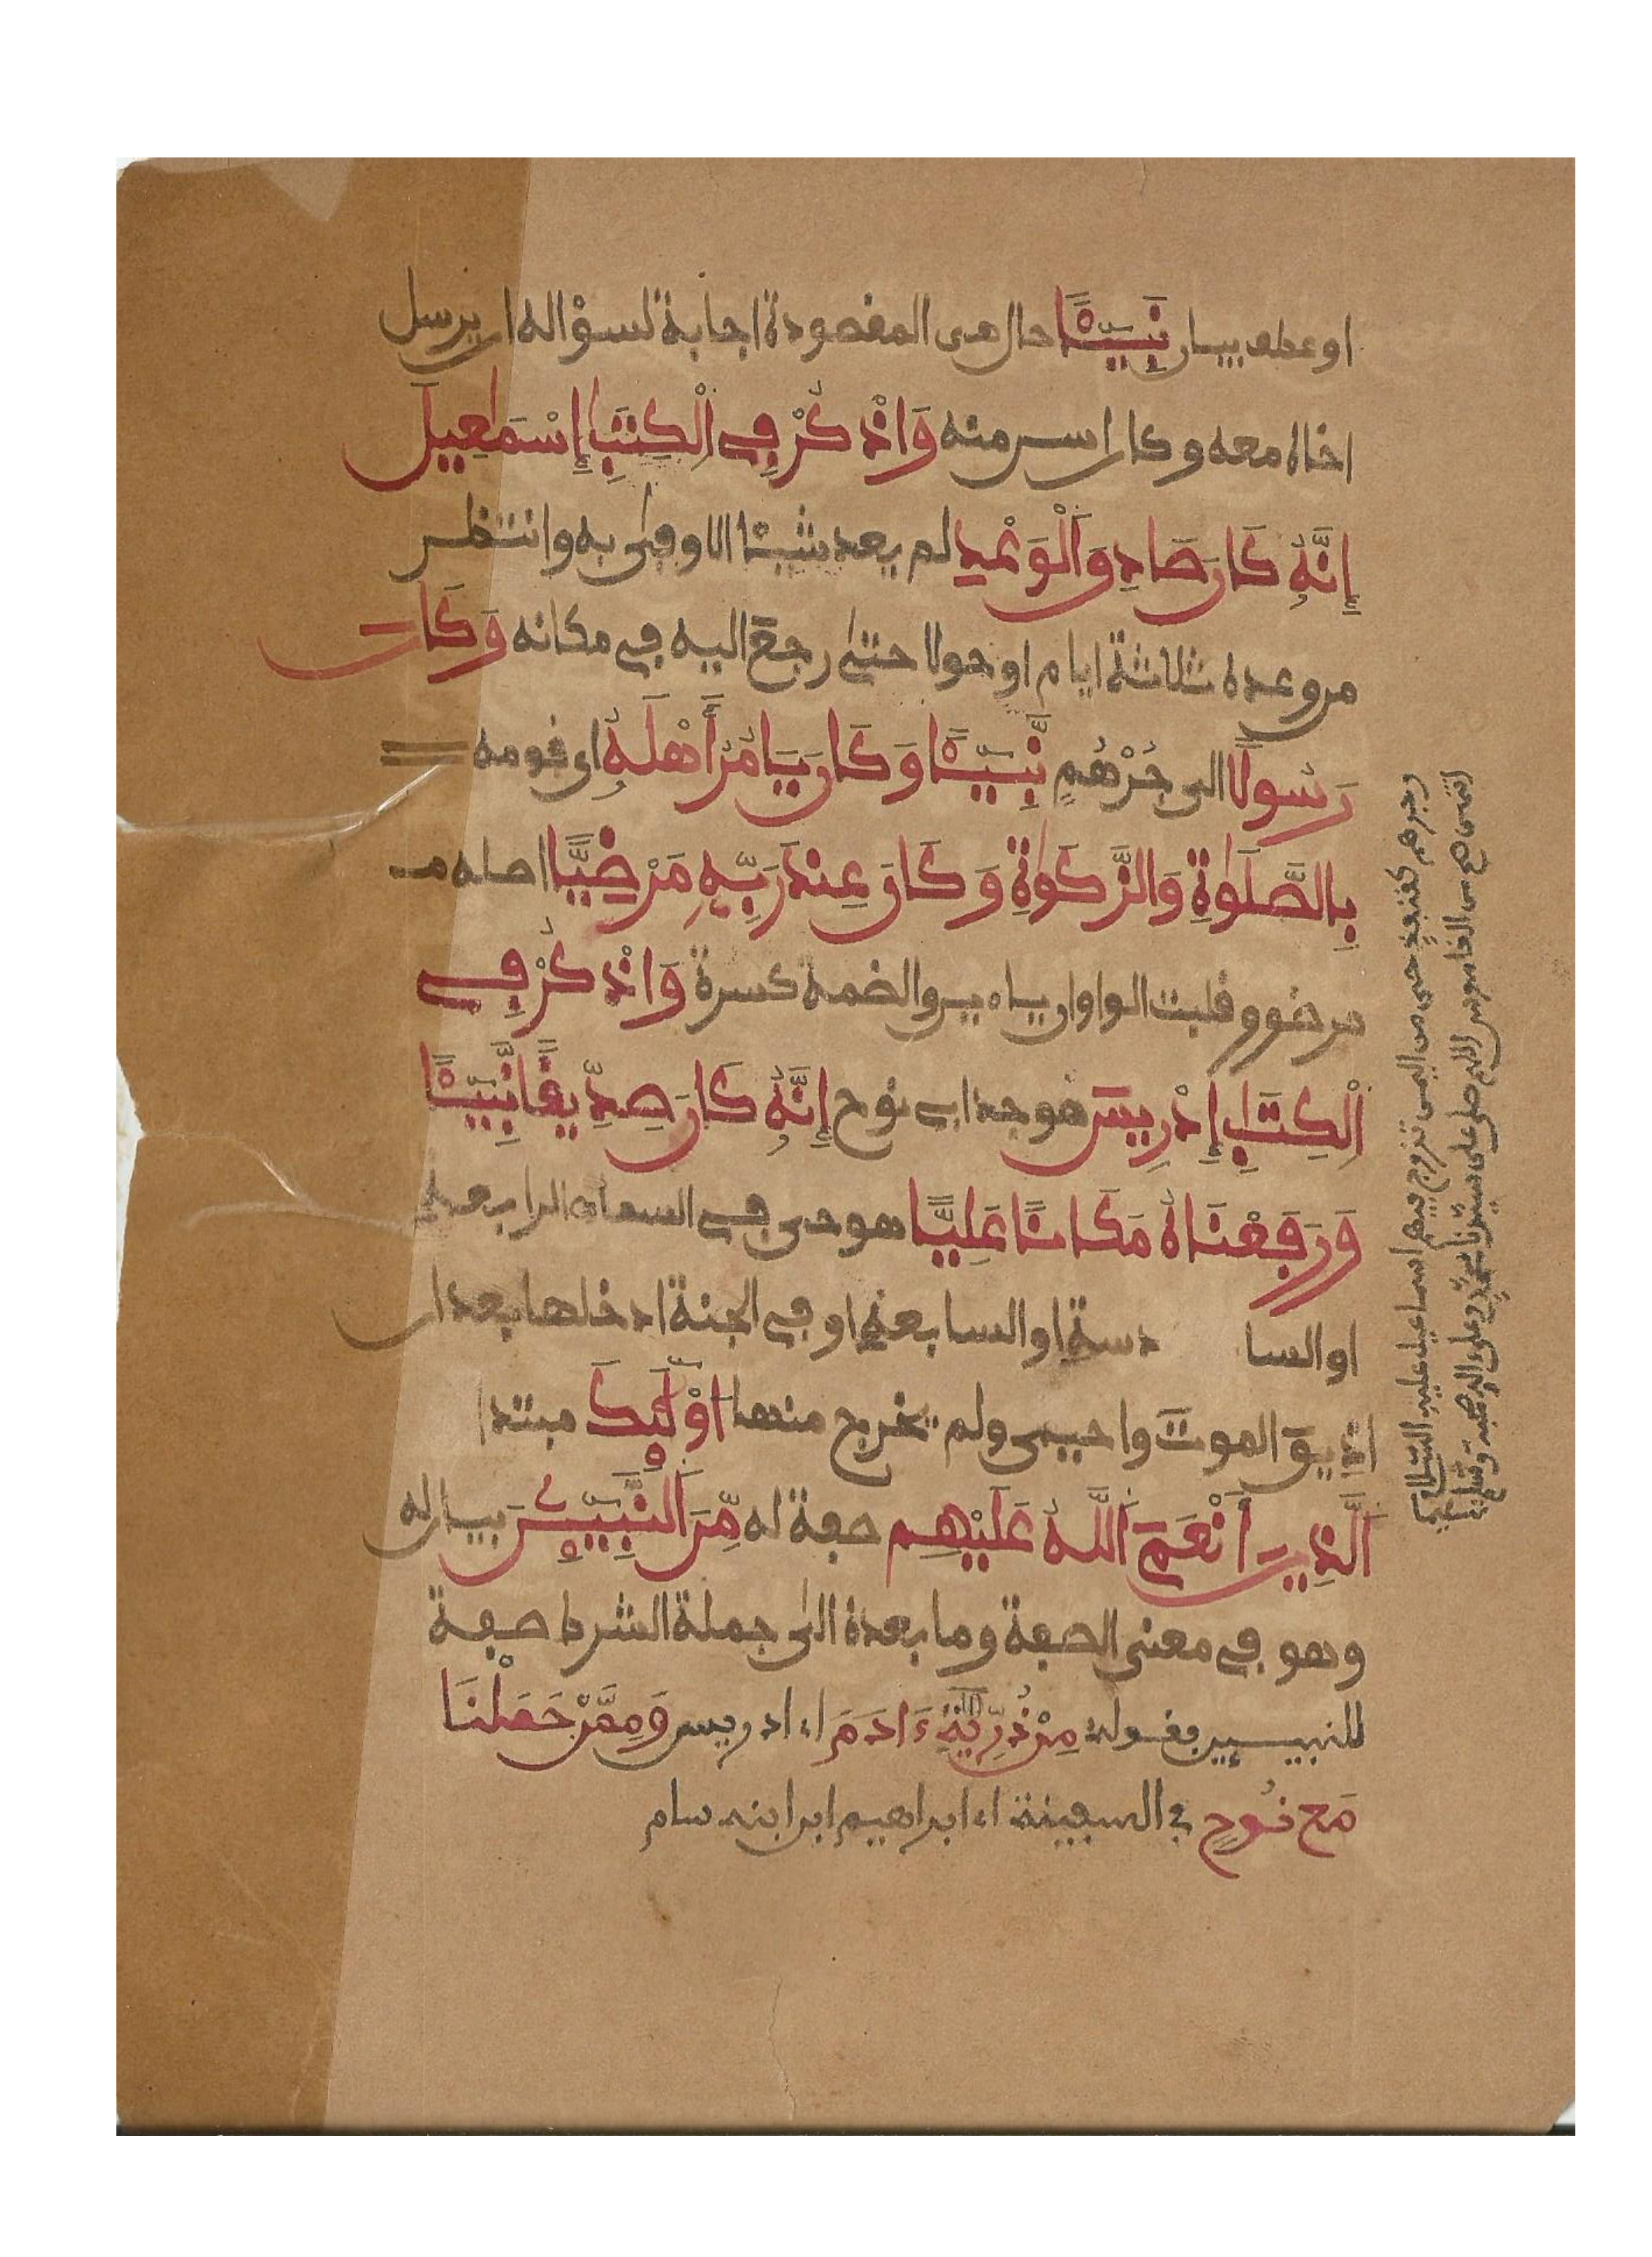 او عطف بيان نَبِيئًا حال هى المقصودة اجابة لسؤاله ان يرسل
اخاه معه وكان اسن منه وَاذْكُرْ فِي الْكِتَٰبِ إِسْمَٰعِيلَ
إِنَّهُ كَانَ صَادِقَ الْوَعْدِ لم يعد شيئا الا وفى به وانتظر
من وعده ثلاثة ايام او حولا حتى رجع اليه في مكانه وَكَانَ
رَسُولًا الى جُرْهُمٍ نَّبِيئًا وَكَانَ يَامُرُ أَهْلَهُ اى قومه
بِالصَّلَوٰةِ وَالزَّكَوٰةِ وَكَانَ عِندَ رَبِّهِ مَرْضِيًّا اصله مـ
مرضوو قلبت الواوان ياءين والضمة كسرة وَاذْكُرْ فِي
الْكِتَٰبِ إِدْرِيسَ هو جد ابى نوح إِنَّهُ كَانَ صِدِّيقًا نَّبِيئًا
وَرَفَعْنَاهُ مَكَانًا عَلِيًّا هو حى في السماء الرابعة
او السا دسة او السابعة او في الجنة ادخلها بعد ان
اذيق الموت واحيى ولم يخرج منها أُوْلَٰئِكَ مبتدا
الَّذِينَ أَنْعَمَ اللَّهُ عَلَيْهِم صفة له مِّنَ النَّبِيِّـينَ بيان له
وهو في معنى الصفة وما بعده الى جملة الشرط صفة
للنبيـين فقوله مِن ذُرِّيَّةِ ءَادَمَ اى ادريس وَمِمَّنْ حَمَلْنَا
مَعَ نُوحٍ في السفينة اى ابراهيم ابن ابنه سام
وجرهم كقنفذ حى من اليمن تزوج فيهم اسماعيل عليه السلام
انتهى من القاموس اللهم صل على سيدنا محمد وعلى اله وصحبه وسلم